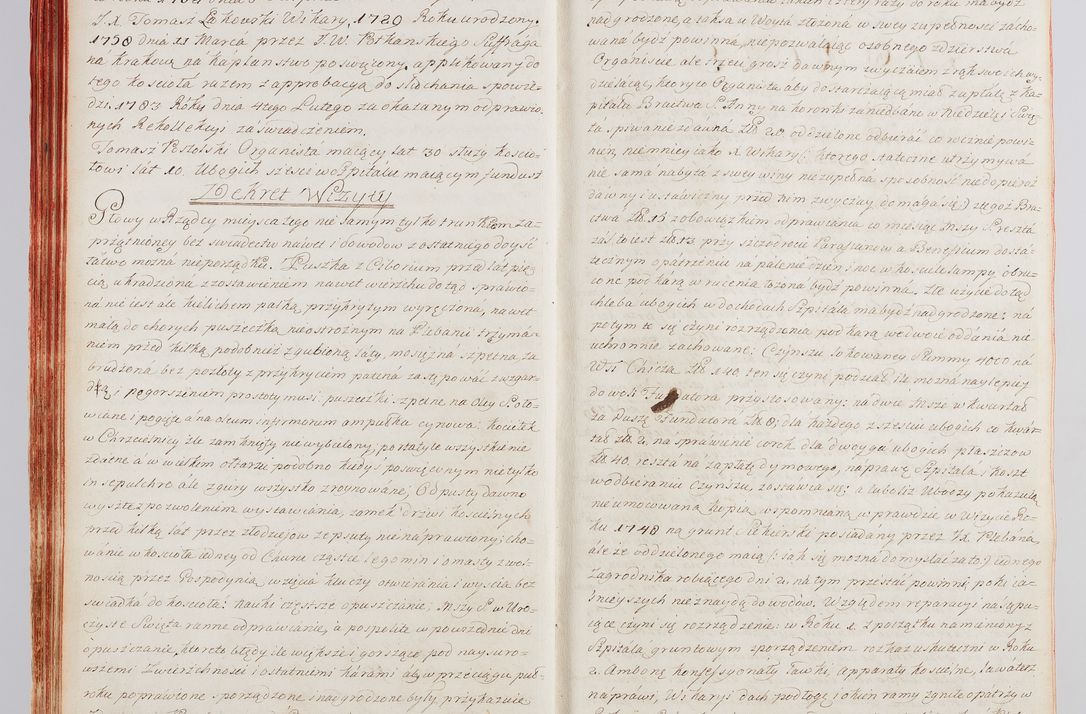 J. X. Tomasz Lakowski Wikary, 1720 Roku urodzony.
1758 dnia 21 Marca przez J. W. Potkanskiego Suffraga
na Krakow: na Kapłanstwo poswięcony, applikowany do
tego kościoła razem z approbacyą do słuchania spowie-
dzi 1783 Roku dnia 4tego Lutego za okazanym odprawio-
nych Rekollekcyi zaswiadczeniem.
Tomasz Pszolski Organista maiący lat 30 służy kościo-
łowi lat 10. Ubogich sześć w Szpitalu maiącym fundusz
Dekret Wizyty
Głowy w Rządcy mieysca tego nie samym tylko trunkiem za-
przątnioney bez swiadectw nawet i dowodow z ostatniego doyść
łatwo można nieporządku. Puszka z Ciborium przed lat pię-
cią ukradziona z zostawieniem nawet wierzchu dotąd sprawio-
na nie iest ale kielichem palką przykrytym wyręczona, nawet
małą do chorych puszeczką nieostrożnym na Plebanii trzyma-
niem przed kilką podobnież zgubioną laty, mosiężna szpetna za-
brudzona bez pozłoty z przykryciem patena zastępować z wzgar-
dą i pogorszeniem prostoty musi: puszeczki szpetne na Oley S. oło-
wiane i pogięta na oleum infirmorum ampułka cynowa: kociełek
w Chrzcielnicy źle zamknięty nie wybielony, portatyle wszystkie nie
zdatne a w wielkim ołtarzu podobno kiedyś poswięconym nie tylko
in sepulchro ale z góry wszystko zroynowane; Odpusty dawno
wyszłe z pozwoleniem wystawiania, zamek u drzwi kościelnych
przed kilką lat przez złodziejow zepsuty nie naprawiony; cho-
wanie w kościele iedney od Chóru części legomin i omasty z wol-
nością przez Gospodynią wzięcia kluczy otwierania i wyścia bez
swiadka do kościoła: nauki częstsze opuszczanie; Mszy S. w Uro-
czyste Swięta ranne odprawianie, a pospolite w powszednie dni
opuszczanie, które to błędy ile większe i gorszące pod naysuro-
wszemi Zwierzchności i ostatnemi karami aby w przeciągu puł-
roku poprawione sporządzone i nagrodzone były przykazuie
nadgrodzone, a taksa u Woyta złożona w swey zupełności zacho-
wana bydź powinna, nie pozwalaiąc osobnego zdzierstwa
Organiscie ale trzeci grosz dawnym zwyczaiem z rąk swoich wy-
dzielaiąc, ktoryto Organista aby do starczaiącą miał zapłatę z Ka-
pitału Bractwa S. Anny na koronki zaniedbane w Niedziele i Swię-
ta spiewanie zdawna Złł 20 oddzielone odbierać co wiernie powi-
nien, niemniey iako X. Wikary (: ktorego stateczne utrzymywa-
nie sama nabyta z swey winy niezupełna sposobność nie dopieroż
dawny i ustawiczny przed nim zwyczay domaga się:) z tegoż Bra-
ctwa Złł 15 z obowiązkiem odprawiania co miesiąc Mszy S. reszta
zaś to iest Złł 13 przy szczodrocie Parafianow a Beneficium dosta-
tecznym opatrzeniu na palenie dzień i noc w kościele lampy obro-
cone pod karą wrucenia łożona bydź powinna. Złe użycie dotąd
chleba ubogich w dochodach Szpitala ma bydź nadgrodzone: na
potym te się czyni rozrządzenia pod karą we dwoie oddania nie
uchronnie zachowane: Czynszu lokowaney Summy 4000 na
Wsi Chicza Złł 140. ten się czyni podział iż można naylepiey
do woli Fundatora przystosowany: na dwie Msze w kwartał
za Duszę Fundatora Złł 8: dla każdego z szesciu ubogich co kwar-
tał Złł 2, na sprawienie co rok dla dwoyga ubogich płaszczow
Złł 40. reszta na zapłatę dymowego, naprawę Szpitala i koszt
w odbieraniu Czynszu, zostawia się: a lubo iż Uboczy pokazuią
nieumocowaną kopią wspomnianą w prawdzie w Wizycie Ro-
ku 1748 na grunt Piekierski posiadany przez JX. Plebana
ale że oddzielonego maią (: iak się można domyslać za to:) iednego
zagrodnika robiącego dni 2. na tym przestać powinni, poki ia-
snieyszych nie znaydą dowodow. Względem reparacyi następu-
iące czyni się rozrządzenie: w Roku 1. z początku namieniony z
Szpitala gruntowym sporządzeniem rozkaz uskuteczni w Roku
2. Ambonę konfessyonały ławki, apparaty kościelne,
naprawi, Wikaryi dach podłogę i okien ramy zgniłe opatrzy w